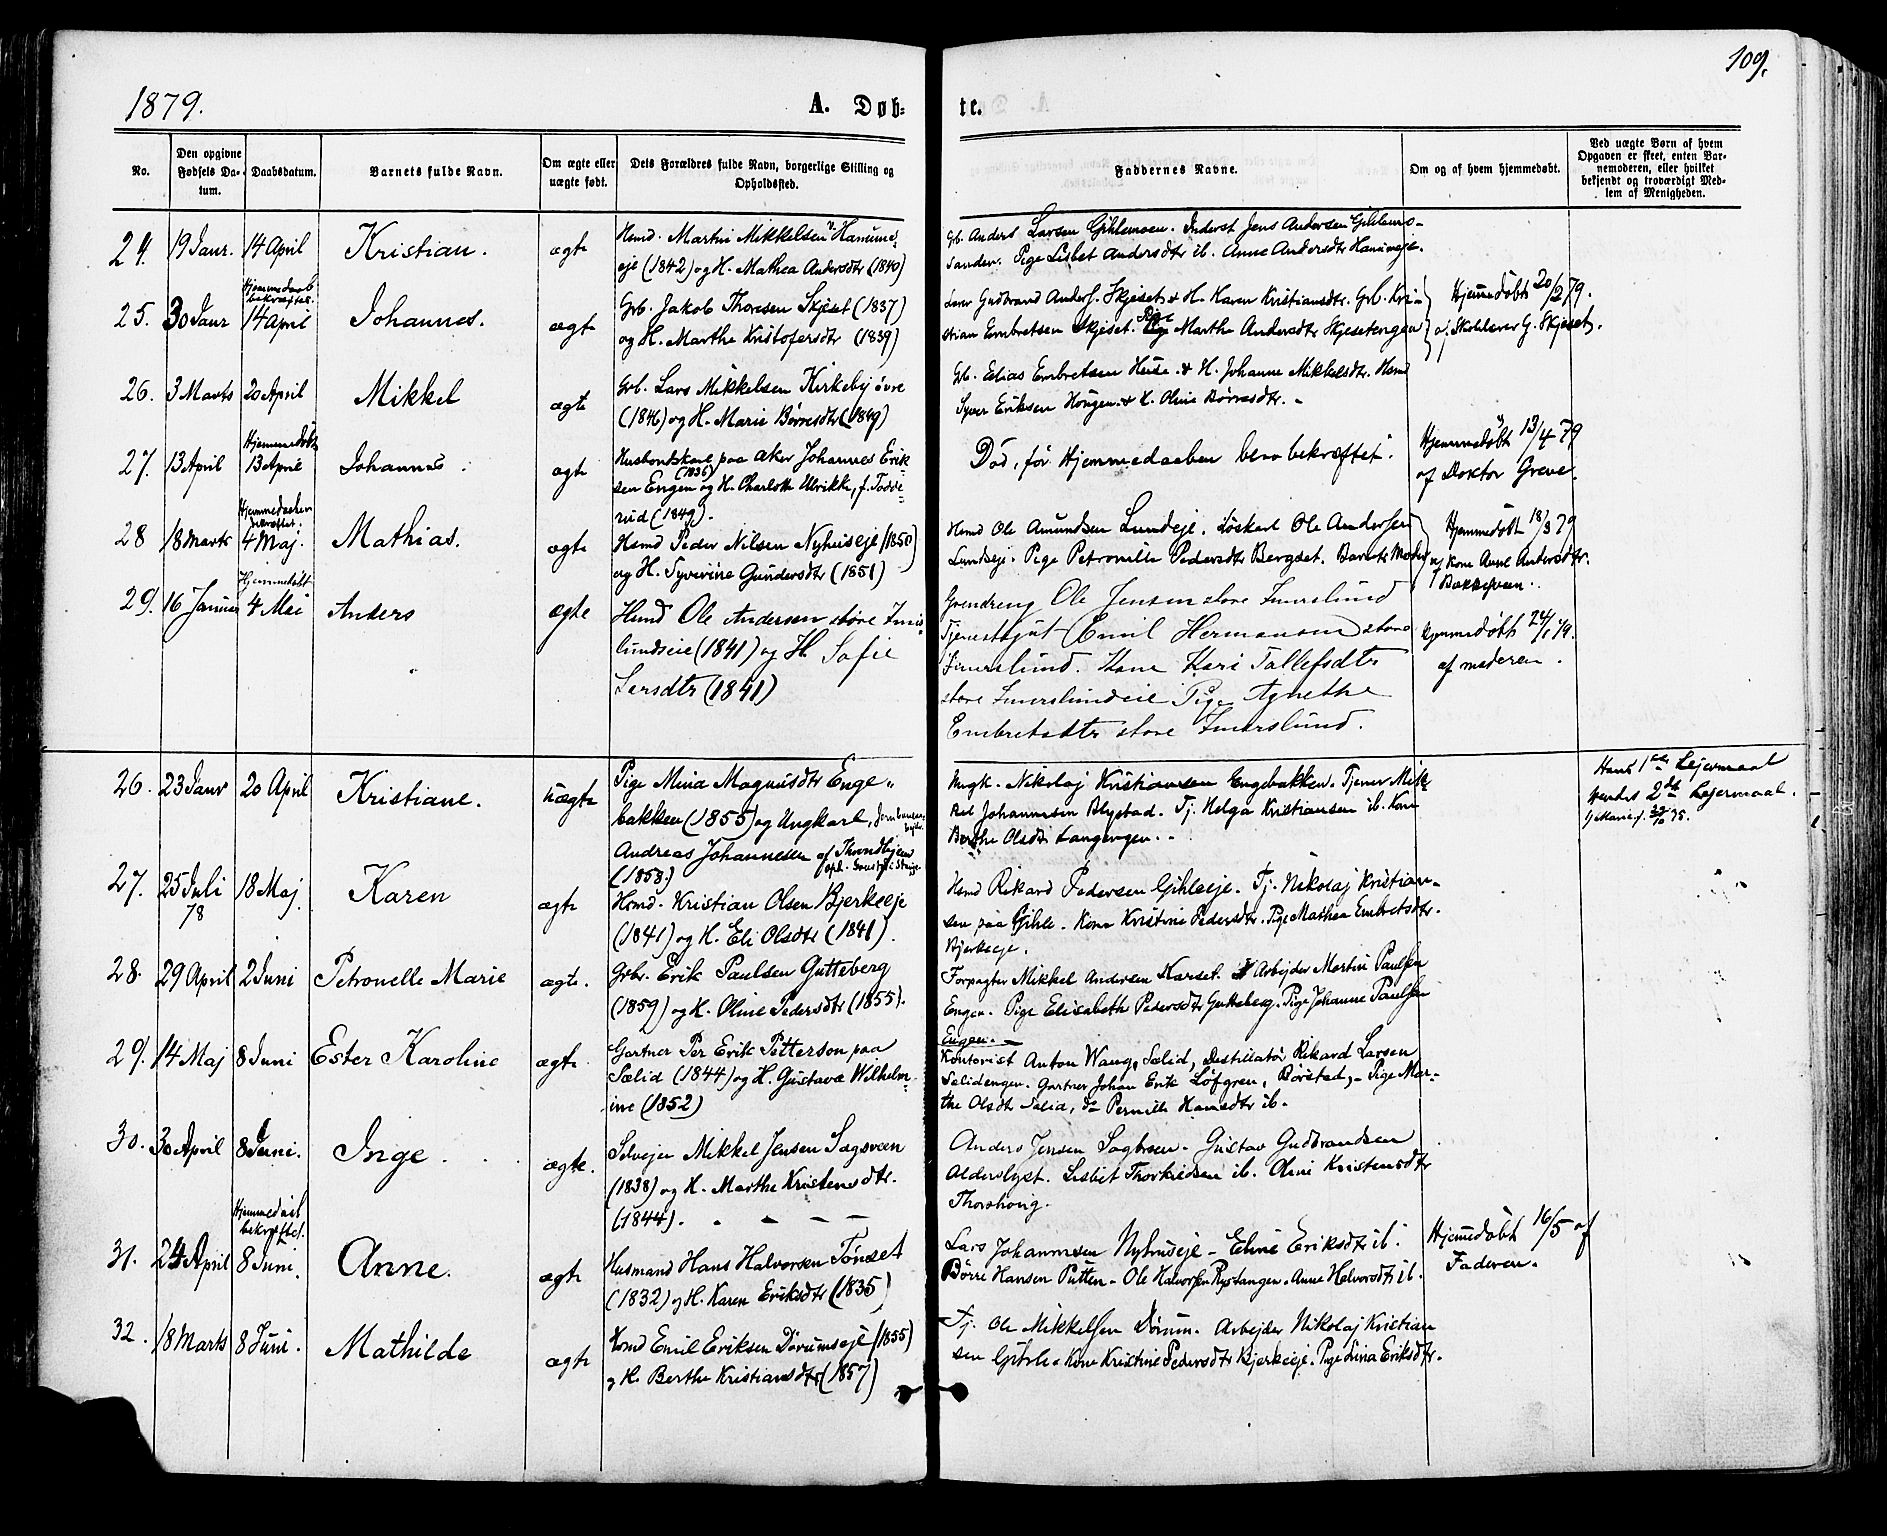 109.
1879.
A. Døb-
te.
No.
Den opgivne Fødsels Da-tum.
Daabsdatum.
Barnets fulde Navn.
Om ægte eller uægte født.
Dets Forældres fulde Navn, borgerlige Stilling og Opholdssted.
Faddernes Navne.
Om og af hvem hjemmedøbt.
Ved uægte Børn af hvem Opgaven er skeet, enten Bar-nemoderen, eller hvilket bekjendt og troværdigt Med-lem af Menigheden.
24. 19 Janr. 14 April Kristian. ægte
Hsmd. Martin Mikkelsen Hammers-
eje (1842) og H. Mathea Andersdtr (1840)
Gb. Anders Larsen Gihlemoen. Inderst Jens Andersen Gihlemo-
sanden. Pige Lisbet Andersdtr ib. Anne Andersdtr
25. 30 Janr Hjemmedaab bekræftet. 14 April Johannes. ægte
Grb. Jakob Thoresen Skjeset (1837)
og H. Marthe Kristofersdtr (1839)
Lærer Gudbrand Anders. Skjeset & H. Karen Kristiansdtr. Grb. Kri-
stian Embretsen Skjeset. Pige Marthe Andersdtr Skjesetengen
Hjemmedøbt 20/2 79.
af Skolelærer G. Skjeset.
26. 3 Marts 20 April Mikkel ægte
Grb. Lars Mikkelsen Kirkeby øvre
(1846) og H. Marie Børresdtr (1849)
Gb. Elias Embretsen Heise. & H. Johanne Mikkelsdtr. Hsmd
Syver Eriksen Hougen. & H. Oline Børresdtr. -
27. 13 April Hjemmedøbt 13 April Johannes. ægte
Husbondskarl paa Aker Johannes Erik-
sen Engen (1836) og H. Charlotte Ulrikke, f. Todde-
rud (1849).
Død, før Hjemmedaaben blev bekræftet.
Hjemmedøbt 13/4 79
af Doktor Greve.
28 18 Marts Hjemmedaaben bekræftet. 4 Maj. Mathias. ægte
Hsmd Peder Nilsen Nyhuseje (1850)
og H. Syverine Gundersdtr (1851)
Hsmd Ole Amundsen Lundeje. Løskarl Ole Andersen
Lundseje. Pige Petronille Pedersdtr Bergset. Barnets Moder
Hjemmedøbt 18/3 79
af Kone Anne Andersdtr.
Bakkeveen.
29. 16 Januar Hjemmedøbt 4 Mei Anders ægte
Hsmd Ole Andersen store Imis-
lundseie (1841) og H. Sofie
Larsdtr (1841)
Grendreng Ole Jensen store Imerslund
Tjenestegut Emil Hermansen store
Imerslund. Kone Kari Tollefsdtr
store Imerslundeie Pige Agnethe
Embretsdtr store Imerslund.
Hjemmedøbt 24/1 79.
af moderen.
26. 23 Janr 20 April Kristiane. uægte
Pige Mina Magnusdtr Enge-
bakken (1855) og Ungkarl,
Andreas Johannesen af Throndhjem
(1853)
Ungk. Nikolaj Kristiansen Engebakken. Tjener Mik-
kel Johannesen Blystad. Tj. Helga Kristiansen ib. Kone
Berthe Olsdtr Langengen.
Hans 1ste Lejermaal
Hendes 2det Lejermaal.
27. 25 Juli 78 18 Maj Karen ægte
Hsmd. Kristian Olsen Bjerkeeje
(1841) og H. Eli Olsdtr (1841).
Hsmd Rikard Pedersen Gihleeje. Tj. Nikolaj Kristian-
sen paa Gihle. Kone Kristine Pedersdtr. Pige Mathea Embretsdtr.
Bjerkeeje.
28. 29 April 2 Juni Petronelle Marie ægte.
Grbr. Erik Paulsen Gutteberg
(1859) og H. Oline Pedersdtr (1855).
Forpagter Mikkel Andersen Karset. Arbejder Martin Paulsen
Engen. Pige Elisabeth Pedersdtr Gutteberg. Pige Johanne Paulsen
Engen. -
29. 14 Maj 8 Juni Ester Karoline ægte
Gartner Per Erik Petterson paa
Sælid (1844) og H. Gustava Wilhelm-
ine (1852)
Kontorist Anton Wang, Sælid, Destillatør Rikard Larsen
Sælidengen. Gartner Johan Erik Løfgren, Børstad, - Pige Mar-
the Olsdtr Sælid, do Pernille Hansdtr ib.
30. 30 April 8 Juni. Inge. ægte.
Selvejer Mikkel Jensen Sagsveen
(1838) og H. Marthe Kristensdtr.
(1844).
Anders Jensen Sagveen. Gustav Gudbrandsen
Alderslyst. Lisbet Thorkildsen ib. Oline Kristensdtr
Thorshoug.
31. 24 April Hjemmedaab bekræftet. 8 Juni. Anne. ægte
Husmand Hans Halvorsen Tønset
(1832) og H. Karen Eriksdtr (1835)
Lars Johannesen Nyhuseje - Eline Eriksdtr ib.
Børre Hansen Putten - Ole Halvorsen Rystangen. Anne Halvorsdtr ib.
Hjemmedøbt 16/5 af
Faderen.
32. 18 Marts 8 Juni. Mathilde ægte
Hsmd Emil Eriksen Dørumseje (1855)
og H. Berthe Kristiansdtr (1857)
Tj. Ole Mikkelsen Dørum. Arbejder Nikolaj Kristian
sen Gihle. Kone Kristine Pedersdtr Bjerkeeje. Pige Lina Eriksdtr.